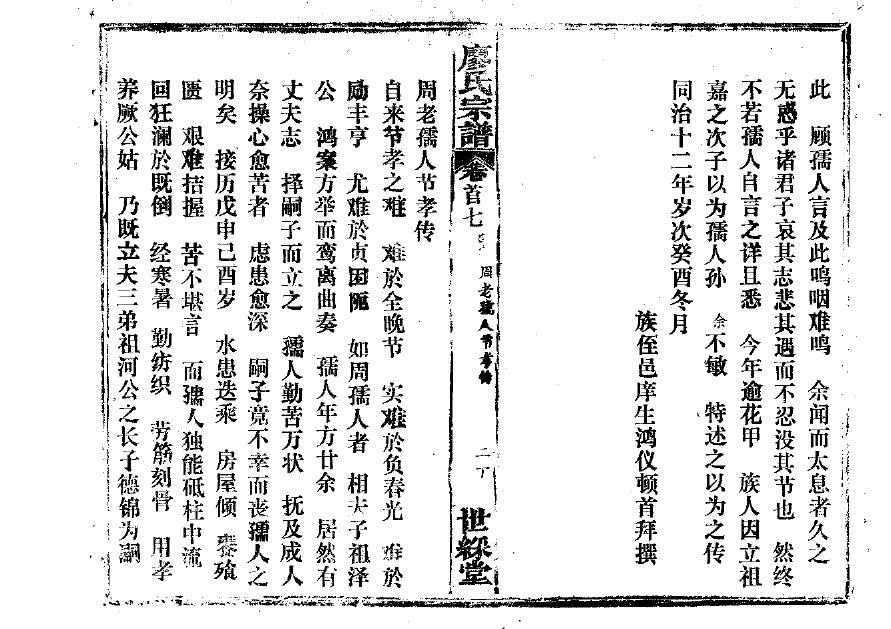 此 顾孺人言及此鸣咽难鸣 余闻而太息者久之
无惑乎诸君子哀其志悲其遇而不忍没其节也 然终
不若孺人自言之详且悉 今年逾花甲 族人因立祖
嘉之次子以为孺人孙 余不敏 特述之以为之传
同治十二年岁次癸酉冬月
族侄邑庠生鸿仪顿首拜撰
廖氏宗譜 卷首七 周老孺人节孝传 二下 世綵堂
周老孺人节孝传
自来节孝之难 难於全晚节 实难於负春光 难於
励丰亨 尤难於贞困阨 如周孺人者 相夫子祖泽
公 鸿案方举而鸾离曲奏 孺人年方廿余 居然有
丈夫志 择嗣子而立之 孺人勤苦万状 抚及成人
奈操心愈苦者 虑患愈深 嗣子竟不幸而丧孺人之
明矣 接历戊申己酉岁 水患迭乘 房屋倾 饔飧
匮 艰难拮握 苦不堪言 而孺人独能砥柱中流
回狂澜於既倒 经寒暑 勤纺织 劳筋刻骨 用孝
养厥公姑 乃既立夫三弟祖河公之长子德锦为嗣